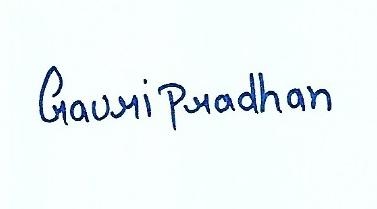 Gauri Pradhan